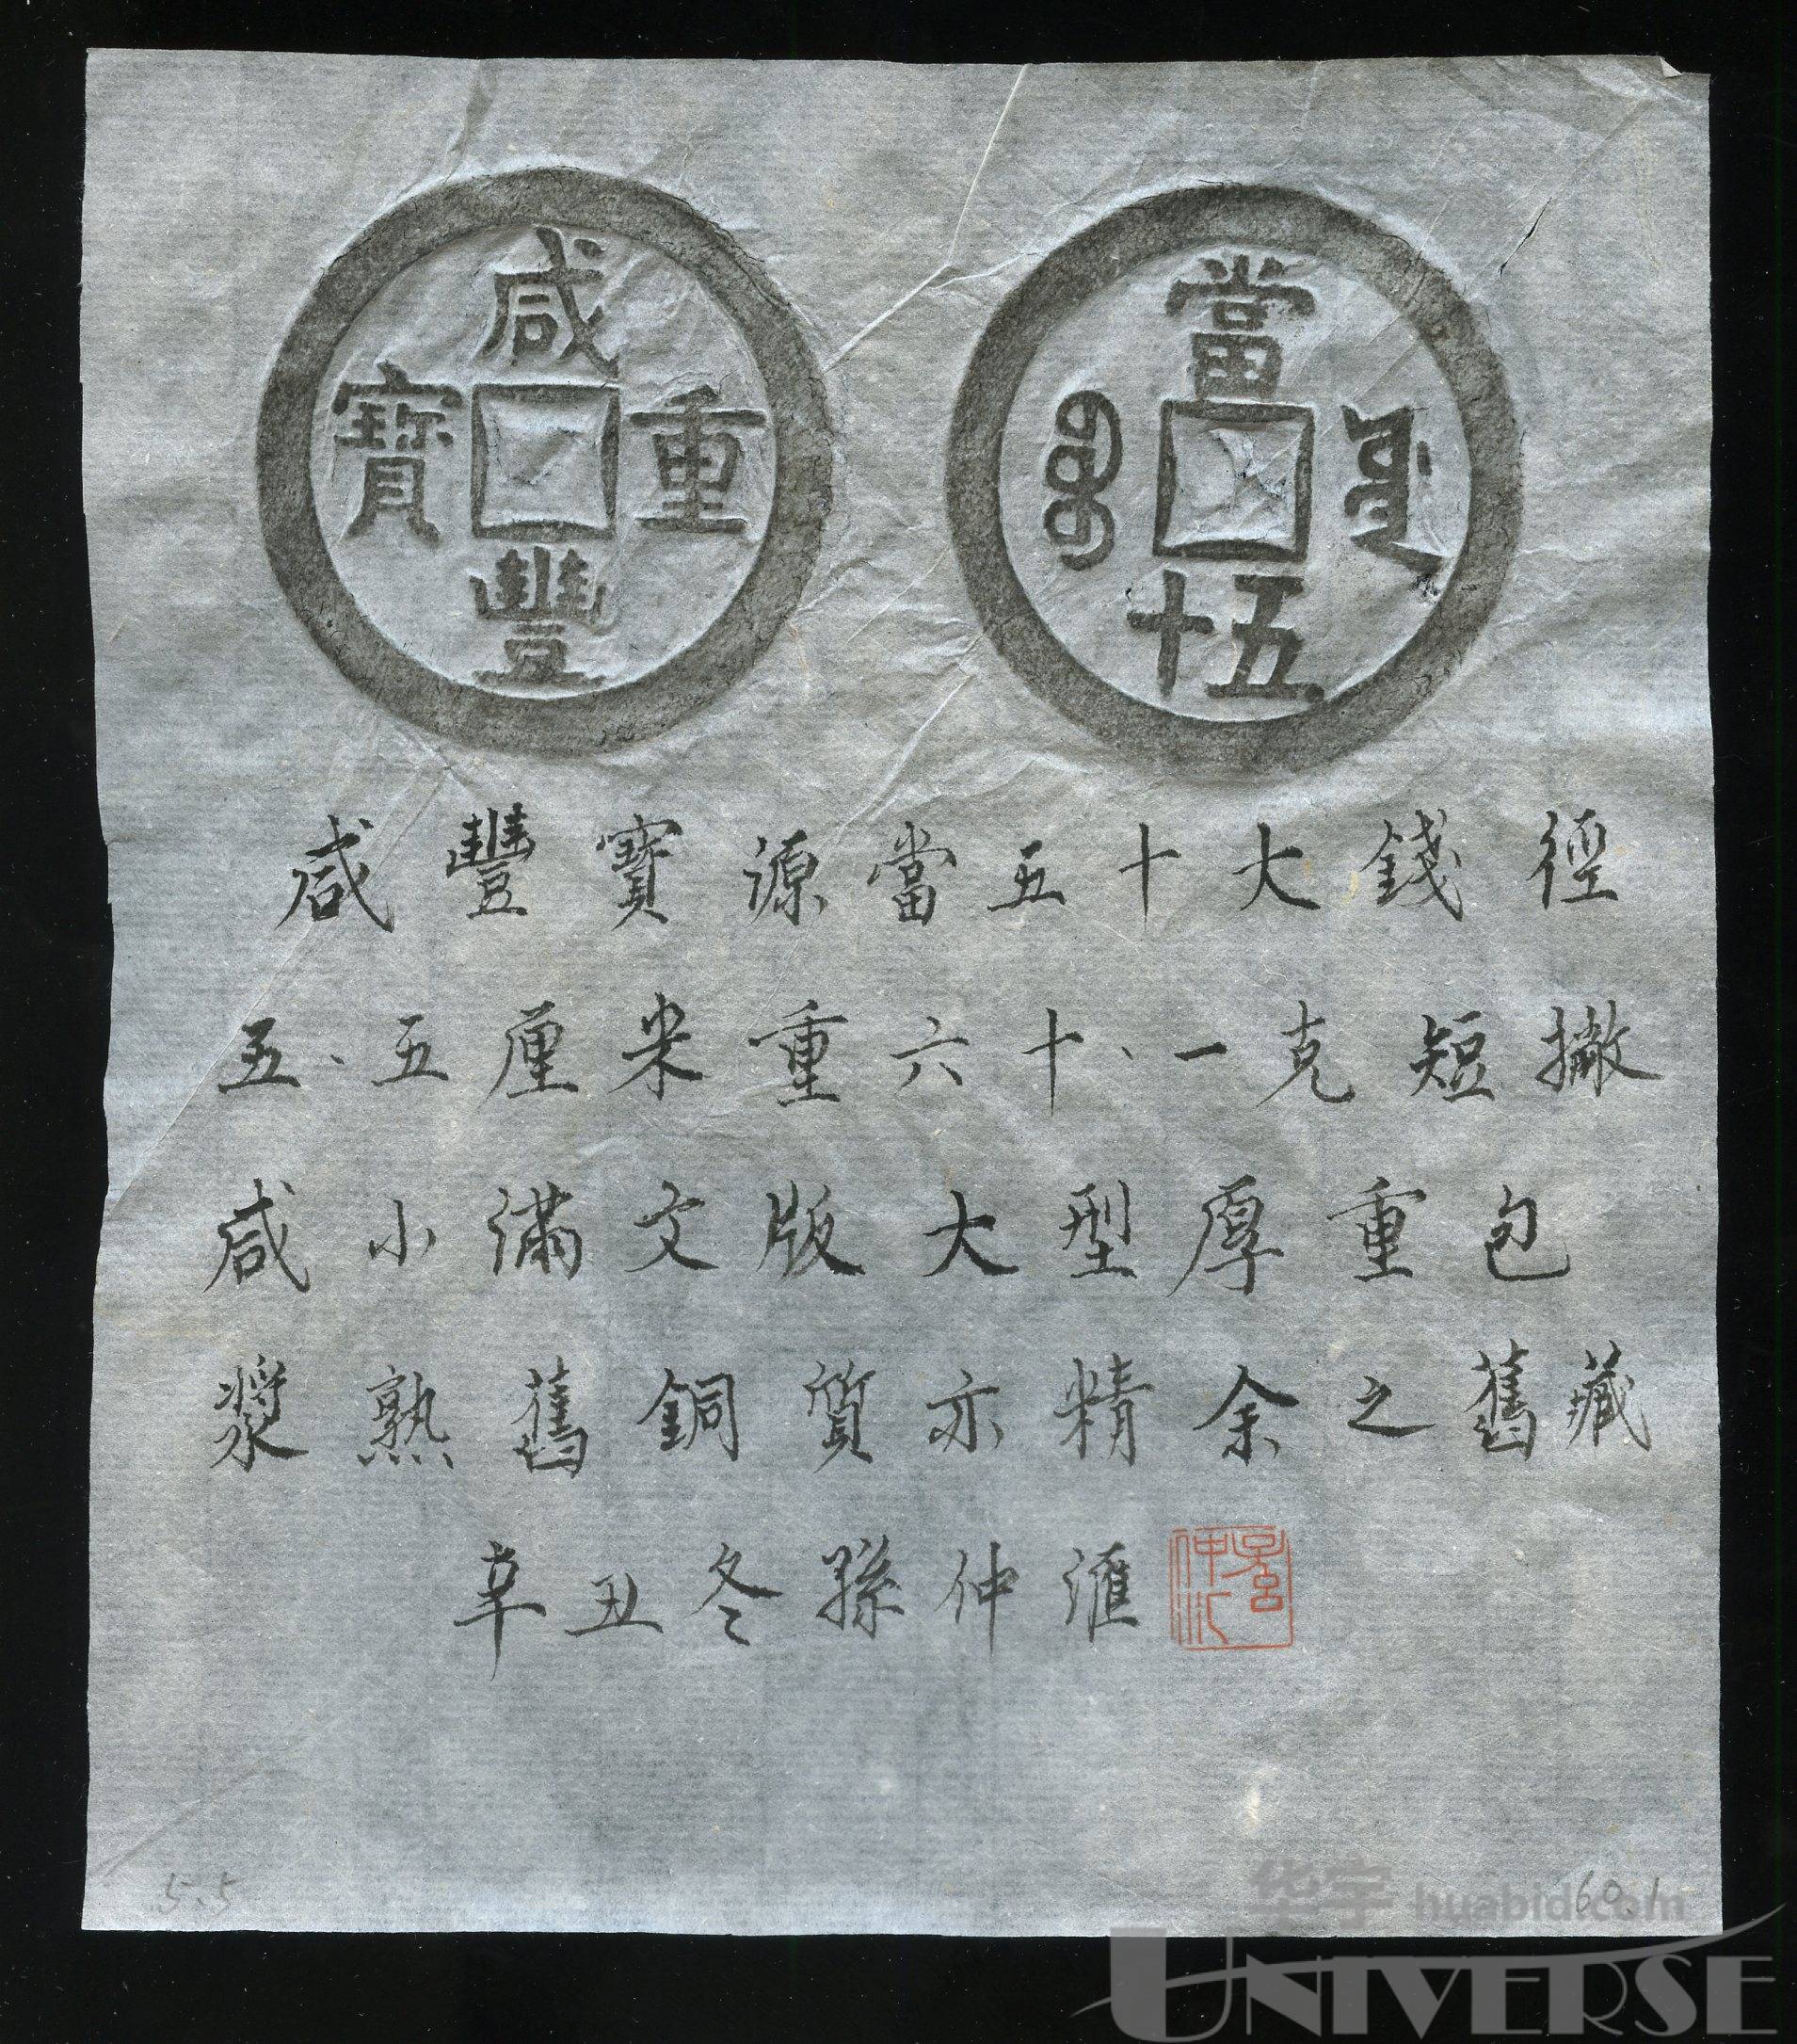 咸豐重寶
當五十
ᠪᠣᠣ ᠶᡠᠸᠠᠨ
咸豐寶源當五十大錢徑
五、五厘米重六十、一克短撇
咸小滿文版大型厚重包
漿熟舊銅質亦精余之舊藏
辛丑冬孫仲滙
孫仲汇
5.5
60.1
华宇 huabid.com
UNIVERSE